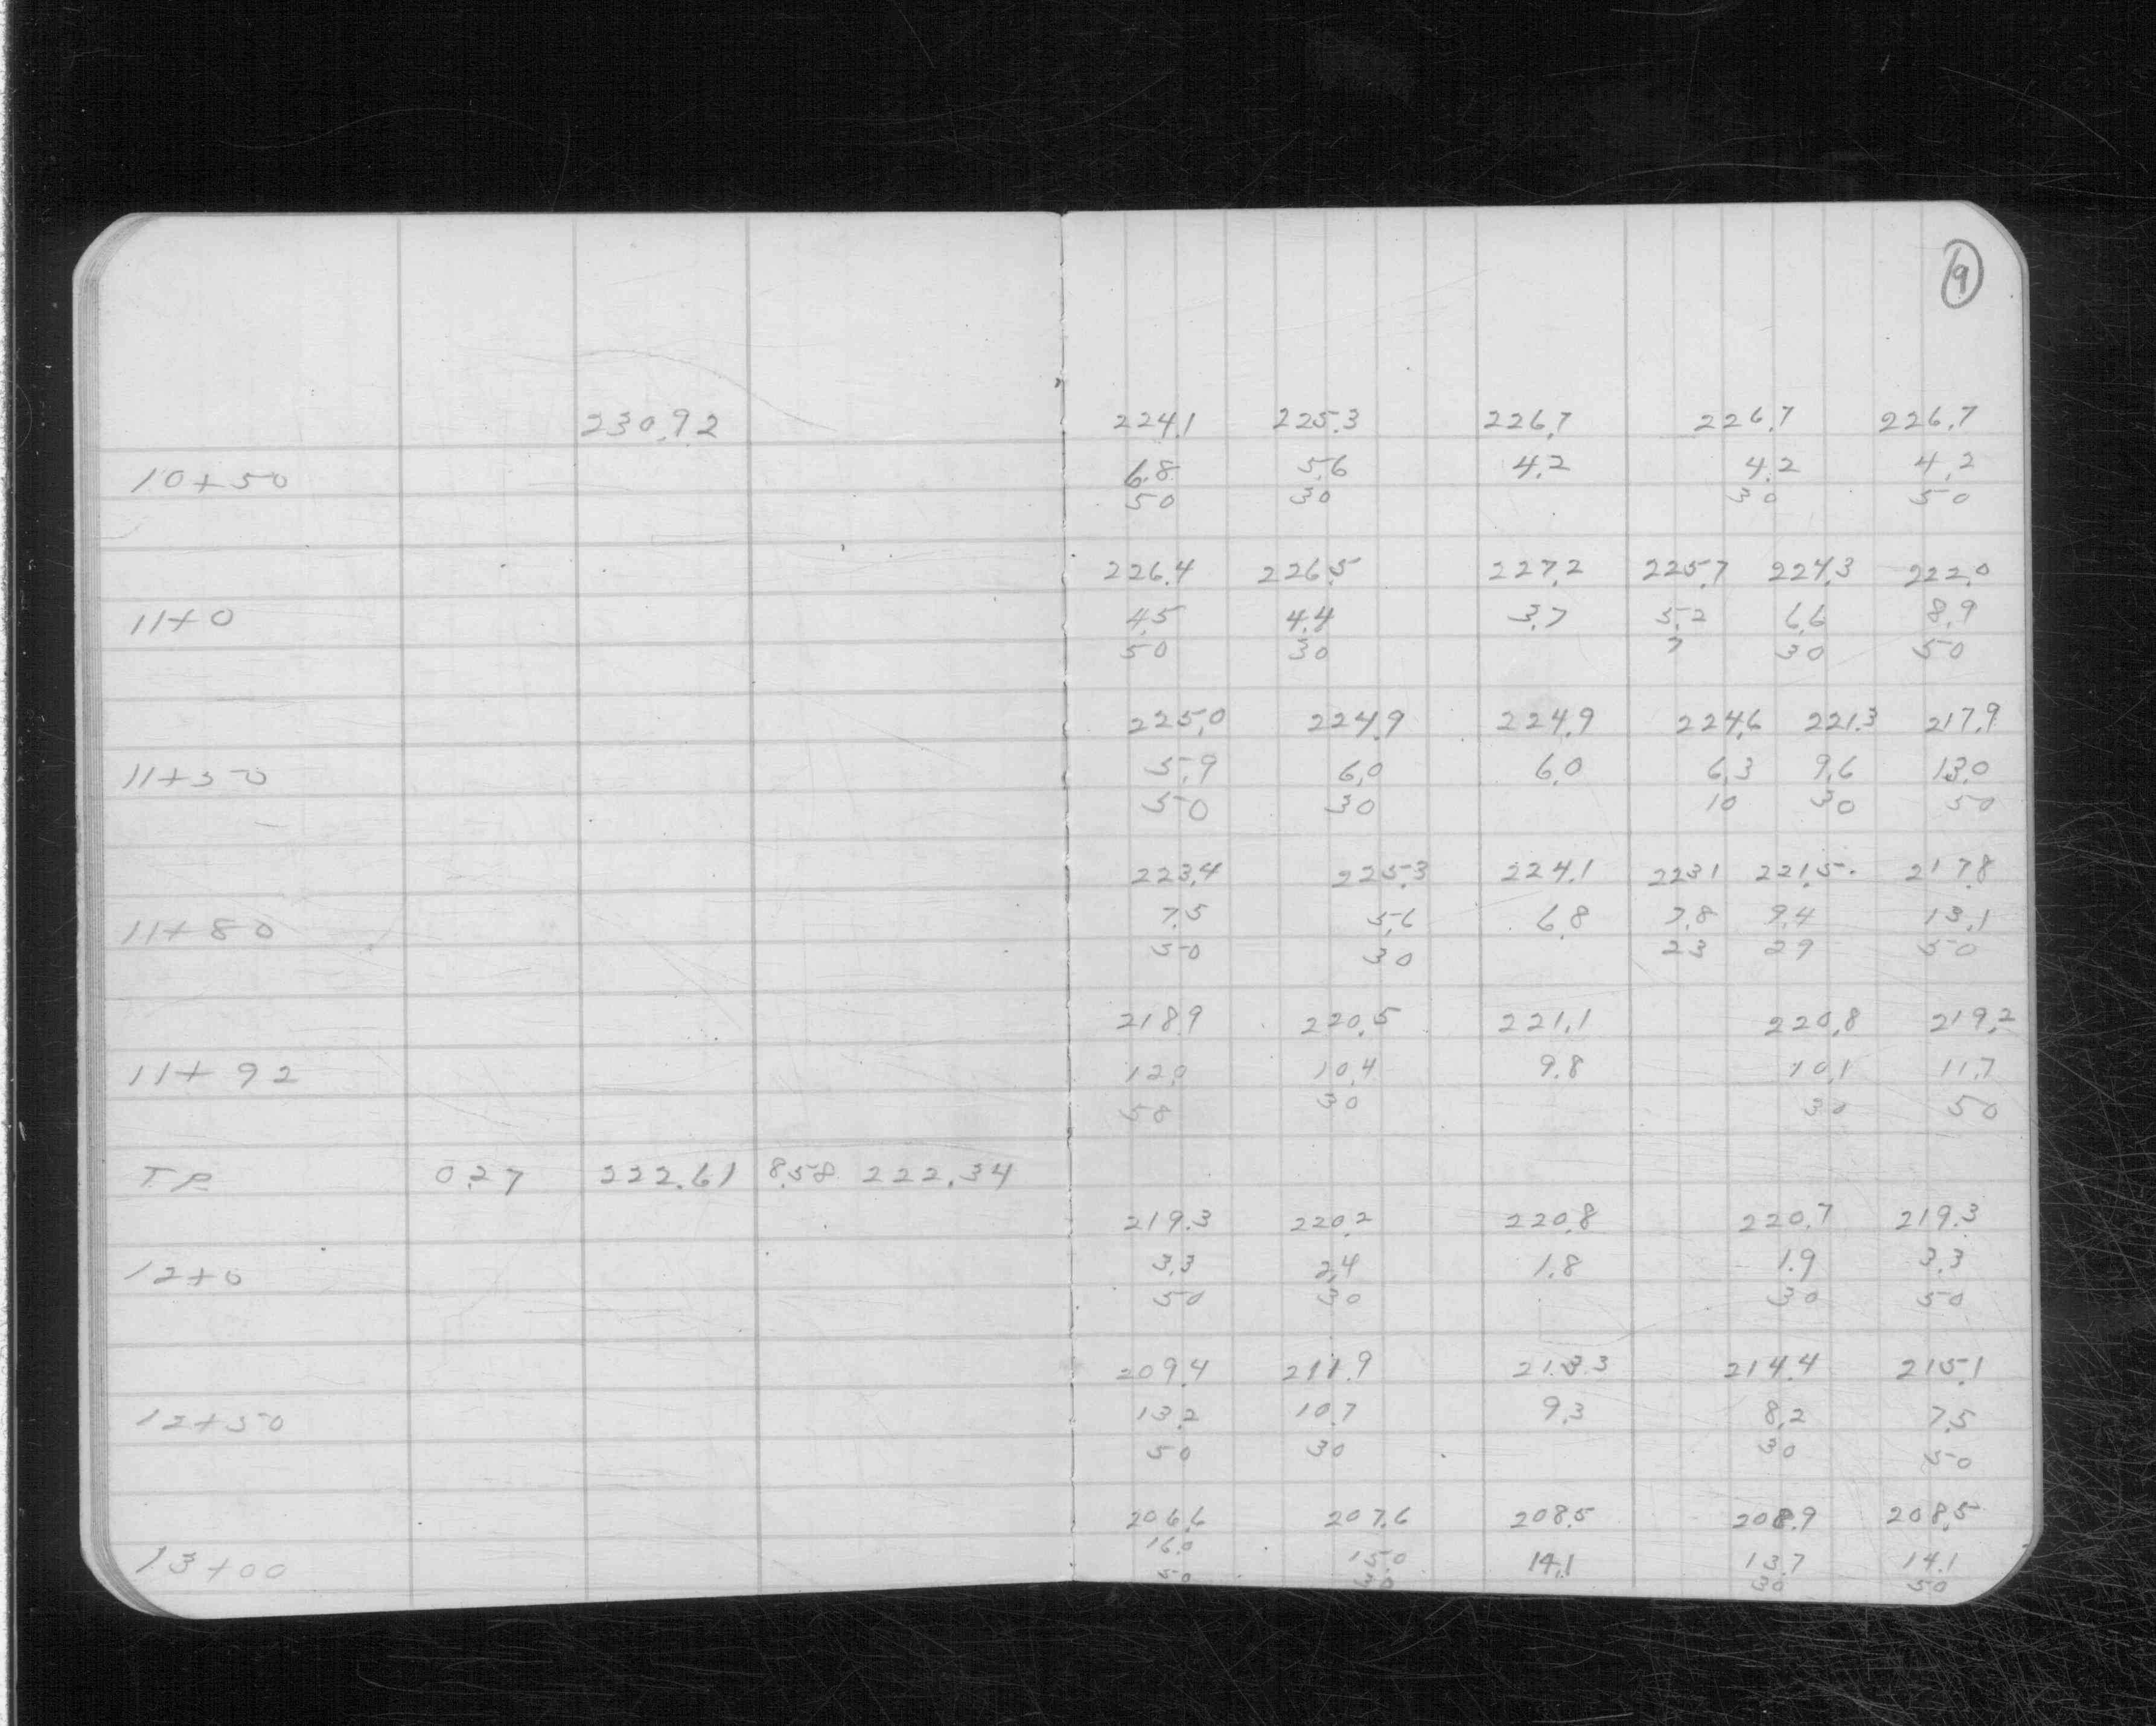 9
230.92 224.1 225.3 226.7 226.7 226.7
10+50 6.8 5.6 4.2 4.2 4.2
50 30 30 50
226.4 226.5 227.2 225.7 224.3 222.0
11+0 4.5 4.4 3.7 5.2 6.6 8.9
50 30 7 30 50
225.0 224.9 224.9 224.6 221.3 217.9
11+50 5.9 6.0 6.0 6.3 9.6 13.0
50 30 10 30 50
223.4 225.3 224.1 223.1 221.5 217.8
11+80 7.5 5.6 6.8 7.8 9.4 13.1
50 30 23 29 50
218.9 220.5 221.1 220.8 219.2
11+92 12.0 10.4 9.8 10.1 11.7
58 30 30 50
TP 0.27 222.61 8.58 222.34
219.3 220.2 220.8 220.7 219.3
12+0 3.3 2.4 1.8 1.9 3.3
50 30 30 50
209.4 211.9 213.3 214.4 215.1
12+50 13.2 10.7 9.3 8.2 7.5
50 30 30 50
206.6 207.6 208.5 208.9 208.5
13+00 16.0 15.0 14.1 13.7 14.1
50 30 30 50